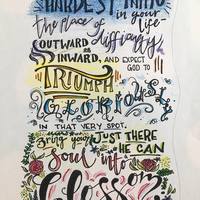 HARDEST THING
in your life
the place of difficulty,
OUTWARD OR
INWARD, AND EXPECT GOD TO
TRIUMPH
GLORIOUSLY
IN THAT VERY SPOT.
JUST THERE
HE CAN
bring your
soul into
blossom